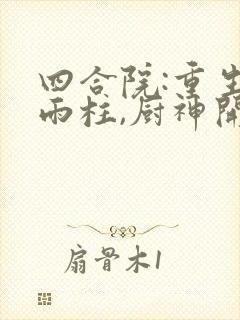 四合院:重生
雨柱,厨神開
扇骨木1